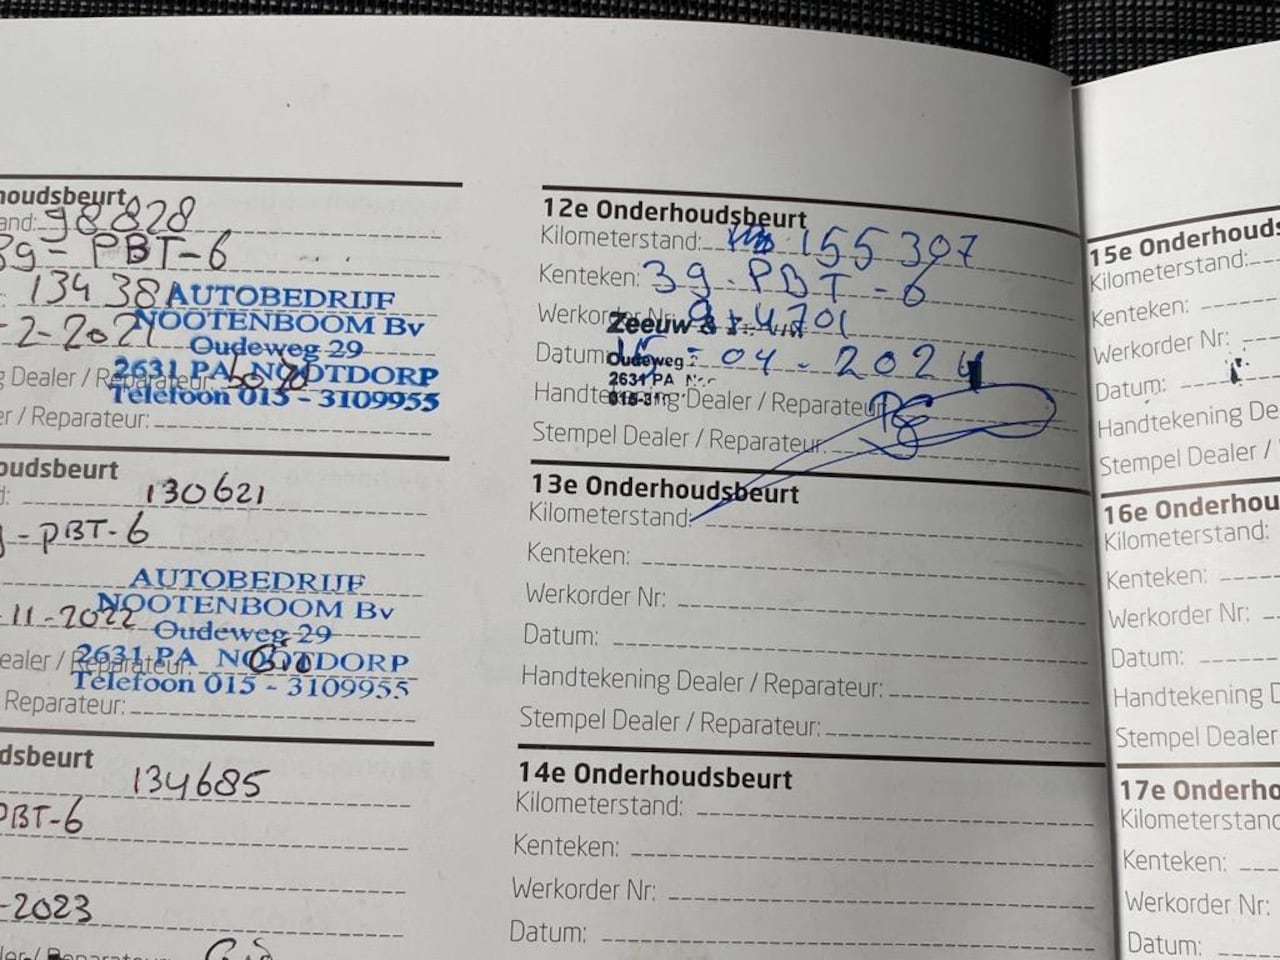 houdsbeurt
and: 98828
39- PBT-6
134 38
AUTOBEDRIJF
-2-2021
NOOTENBOOM Bv
Oudeweg 29
2631 PA NOOTDORP
g Dealer / Reparateur:
Telefoon 015 - 3109955
er / Reparateur:
oudsbeurt
d: 130621
-PBT-6
AUTOBEDRIJF
11-2022
NOOTENBOOM Bv
Oudeweg 29
2631 PA NOOTDORP
ealer / Reparateur:
Telefoon 015 - 3109955
Reparateur:
dsbeurt
134685
PBT-6
-2023
12e Onderhoudsbeurt
Kilometerstand: 155307
Kenteken: 39-PBT-6
Werkorder Nr: 9-4701
Zeeuw &
Datum: -04-2024
Oudeweg
2631 PA
Handtekening Dealer / Reparateur:
Stempel Dealer / Reparateur:
13e Onderhoudsbeurt
Kilometerstand:
Kenteken:
Werkorder Nr:
Datum:
Handtekening Dealer / Reparateur:
Stempel Dealer / Reparateur:
14e Onderhoudsbeurt
Kilometerstand:
Kenteken:
Werkorder Nr:
Datum:
15e Onderhouds
Kilometerstand:
Kenteken:
Werkorder Nr:
Datum:
Handtekening De
Stempel Dealer /
16e Onderhou
Kilometerstand:
Kenteken:
Werkorder Nr:
Datum:
Handtekening D
Stempel Dealer
17e Onderho
Kilometerstand
Kenteken:
Werkorder Nr:
Datum: